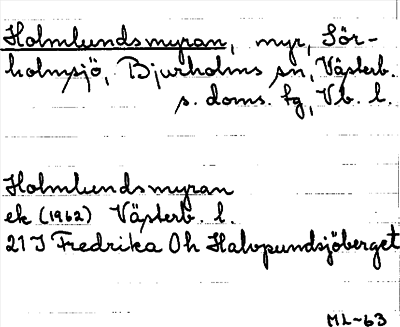 Holmlundsmyran, myr, Sör-
holmsjö, Bjurholms sn, Västerb.
s. doms. fg, Vb. l.
Holmlundsmyran
ek (1962) Västerb. l.
21 I Fredrika Oh Halvpundsjöberget
ML-63